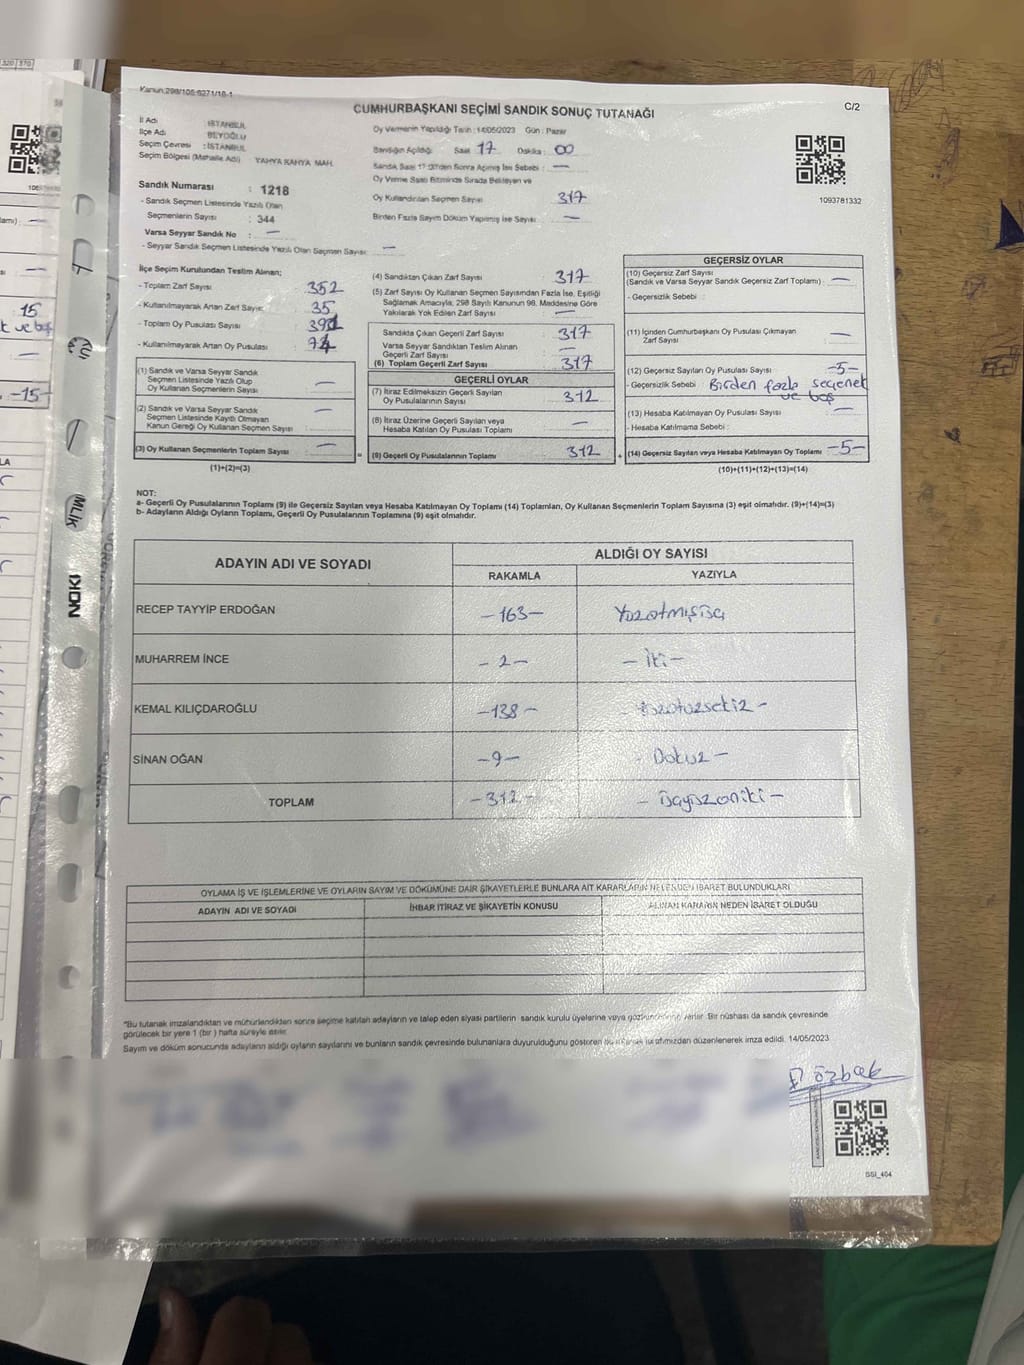 Kanun:298/106-6271/18-1
CUMHURBAŞKANI SEÇİMİ SANDIK SONUÇ TUTANAĞI
C/2
İl Adı : İSTANBUL
İlçe Adı BEYOĞLU
Seçim Çevresi : İSTANBUL
Seçim Bölgesi (Mahalle Adı) YAHYA KAHYA MAH.
Sandık Numarası : 1218
- Sandık Seçmen Listesinde Yazılı Olan
Seçmenlerin Sayısı : 344
Varsa Seyyar Sandık No : —
- Seyyar Sandık Seçmen Listesinde Yazılı Olan Seçmen Sayısı: —
Oy Vermenin Yapıldığı Tarih : 14/05/2023 Gün : Pazar
Sandığın Açıldığı Saat 17 Dakika : 00
Sandık Saat 17:00'den Sonra Açılmış İse Sebebi : —
Oy Verme Saati Bitiminde Sırada Bekleyen ve
Oy Kullandırılan Seçmen Sayısı 317
Birden Fazla Sayım Döküm Yapılmış İse Sayısı : —
1093781332
İlçe Seçim Kurulundan Teslim Alınan;
- Toplam Zarf Sayısı : 352
- Kullanılmayarak Artan Zarf Sayısı: 35
- Toplam Oy Pusulası Sayısı :
- Kullanılmayarak Artan Oy Pusulası :
(1) Sandık ve Varsa Seyyar Sandık
Seçmen Listesinde Yazılı Olup
Oy Kullanan Seçmenlerin Sayısı —
(2) Sandık ve Varsa Seyyar Sandık
Seçmen Listesinde Kayıtlı Olmayan
Kanun Gereği Oy Kullanan Seçmen Sayısı —
(3) Oy Kullanan Seçmenlerin Toplam Sayısı —
(1)+(2)=(3)
(4) Sandıktan Çıkan Zarf Sayısı 317
(5) Zarf Sayısı Oy Kullanan Seçmen Sayısından Fazla İse, Eşitliği
Sağlamak Amacıyla, 298 Sayılı Kanunun 98. Maddesine Göre
Yakılarak Yok Edilen Zarf Sayısı —
Sandıkta Çıkan Geçerli Zarf Sayısı : 317
Varsa Seyyar Sandıktan Teslim Alınan
Geçerli Zarf Sayısı —
(6) Toplam Geçerli Zarf Sayısı : 317
GEÇERLİ OYLAR
(7) İtiraz Edilmeksizin Geçerli Sayılan
Oy Pusulalarının Sayısı 312
(8) İtiraz Üzerine Geçerli Sayılan veya
Hesaba Katılan Oy Pusulası Toplamı —
(9) Geçerli Oy Pusulalarının Toplamı 312
GEÇERSİZ OYLAR
(10) Geçersiz Zarf Sayısı
(Sandık ve Varsa Seyyar Sandık Geçersiz Zarf Toplamı) : —
- Geçersizlik Sebebi :
(11) İçinden Cumhurbaşkanı Oy Pusulası Çıkmayan
Zarf Sayısı —
(12) Geçersiz Sayılan Oy Pusulası Sayısı : -5-
- Geçersizlik Sebebi : Birden fazla seçenek
ve boş
(13) Hesaba Katılmayan Oy Pusulası Sayısı : —
- Hesaba Katılmama Sebebi :
(14) Geçersiz Sayılan veya Hesaba Katılmayan Oy Toplamı -5-
(10)+(11)+(12)+(13)=(14)
NOT:
a- Geçerli Oy Pusulalarının Toplamı (9) ile Geçersiz Sayılan veya Hesaba Katılmayan Oy Toplamı (14) Toplamları, Oy Kullanan Seçmenlerin Toplam Sayısına (3) eşit olmalıdır. (9)+(14)=(3)
b- Adayların Aldığı Oyların Toplamı, Geçerli Oy Pusulalarının Toplamına (9) eşit olmalıdır.
ADAYIN ADI VE SOYADI ALDIĞI OY SAYISI
RAKAMLA YAZIYLA
RECEP TAYYİP ERDOĞAN -163- Yüzatmışüç
MUHARREM İNCE -2- -İki-
KEMAL KILIÇDAROĞLU -138- Yüzotuzsekiz-
SİNAN OĞAN -9- -Dokuz-
TOPLAM -312- -Üçyüzoniki-
OYLAMA İŞ VE İŞLEMLERİNE VE OYLARIN SAYIM VE DÖKÜMÜNE DAİR ŞİKAYETLERLE BUNLARA AİT KARARLARIN NELERDEN İBARET BULUNDUKLARI
ADAYIN ADI VE SOYADI İHBAR İTİRAZ VE ŞİKAYETİN KONUSU ALINAN KARARIN NEDEN İBARET OLDUĞU
"Bu tutanak imzalandıktan ve mühürlendikten sonra seçime katılan adayların ve talep eden siyasi partilerin sandık kurulu üyelerine veya gözlemcilerine verilir. Bir nüshası da sandık çevresinde
görülecek bir yere 1 (bir) hafta süreyle asılır.
Sayım ve döküm sonucunda adayların aldığı oyların sayılarını ve bunların sandık çevresinde bulunanlara duyurulduğunu gösteren bu tutanak tarafımızdan düzenlenerek imza edildi. 14/05/2023
özbek
SSI_404
15
-15-